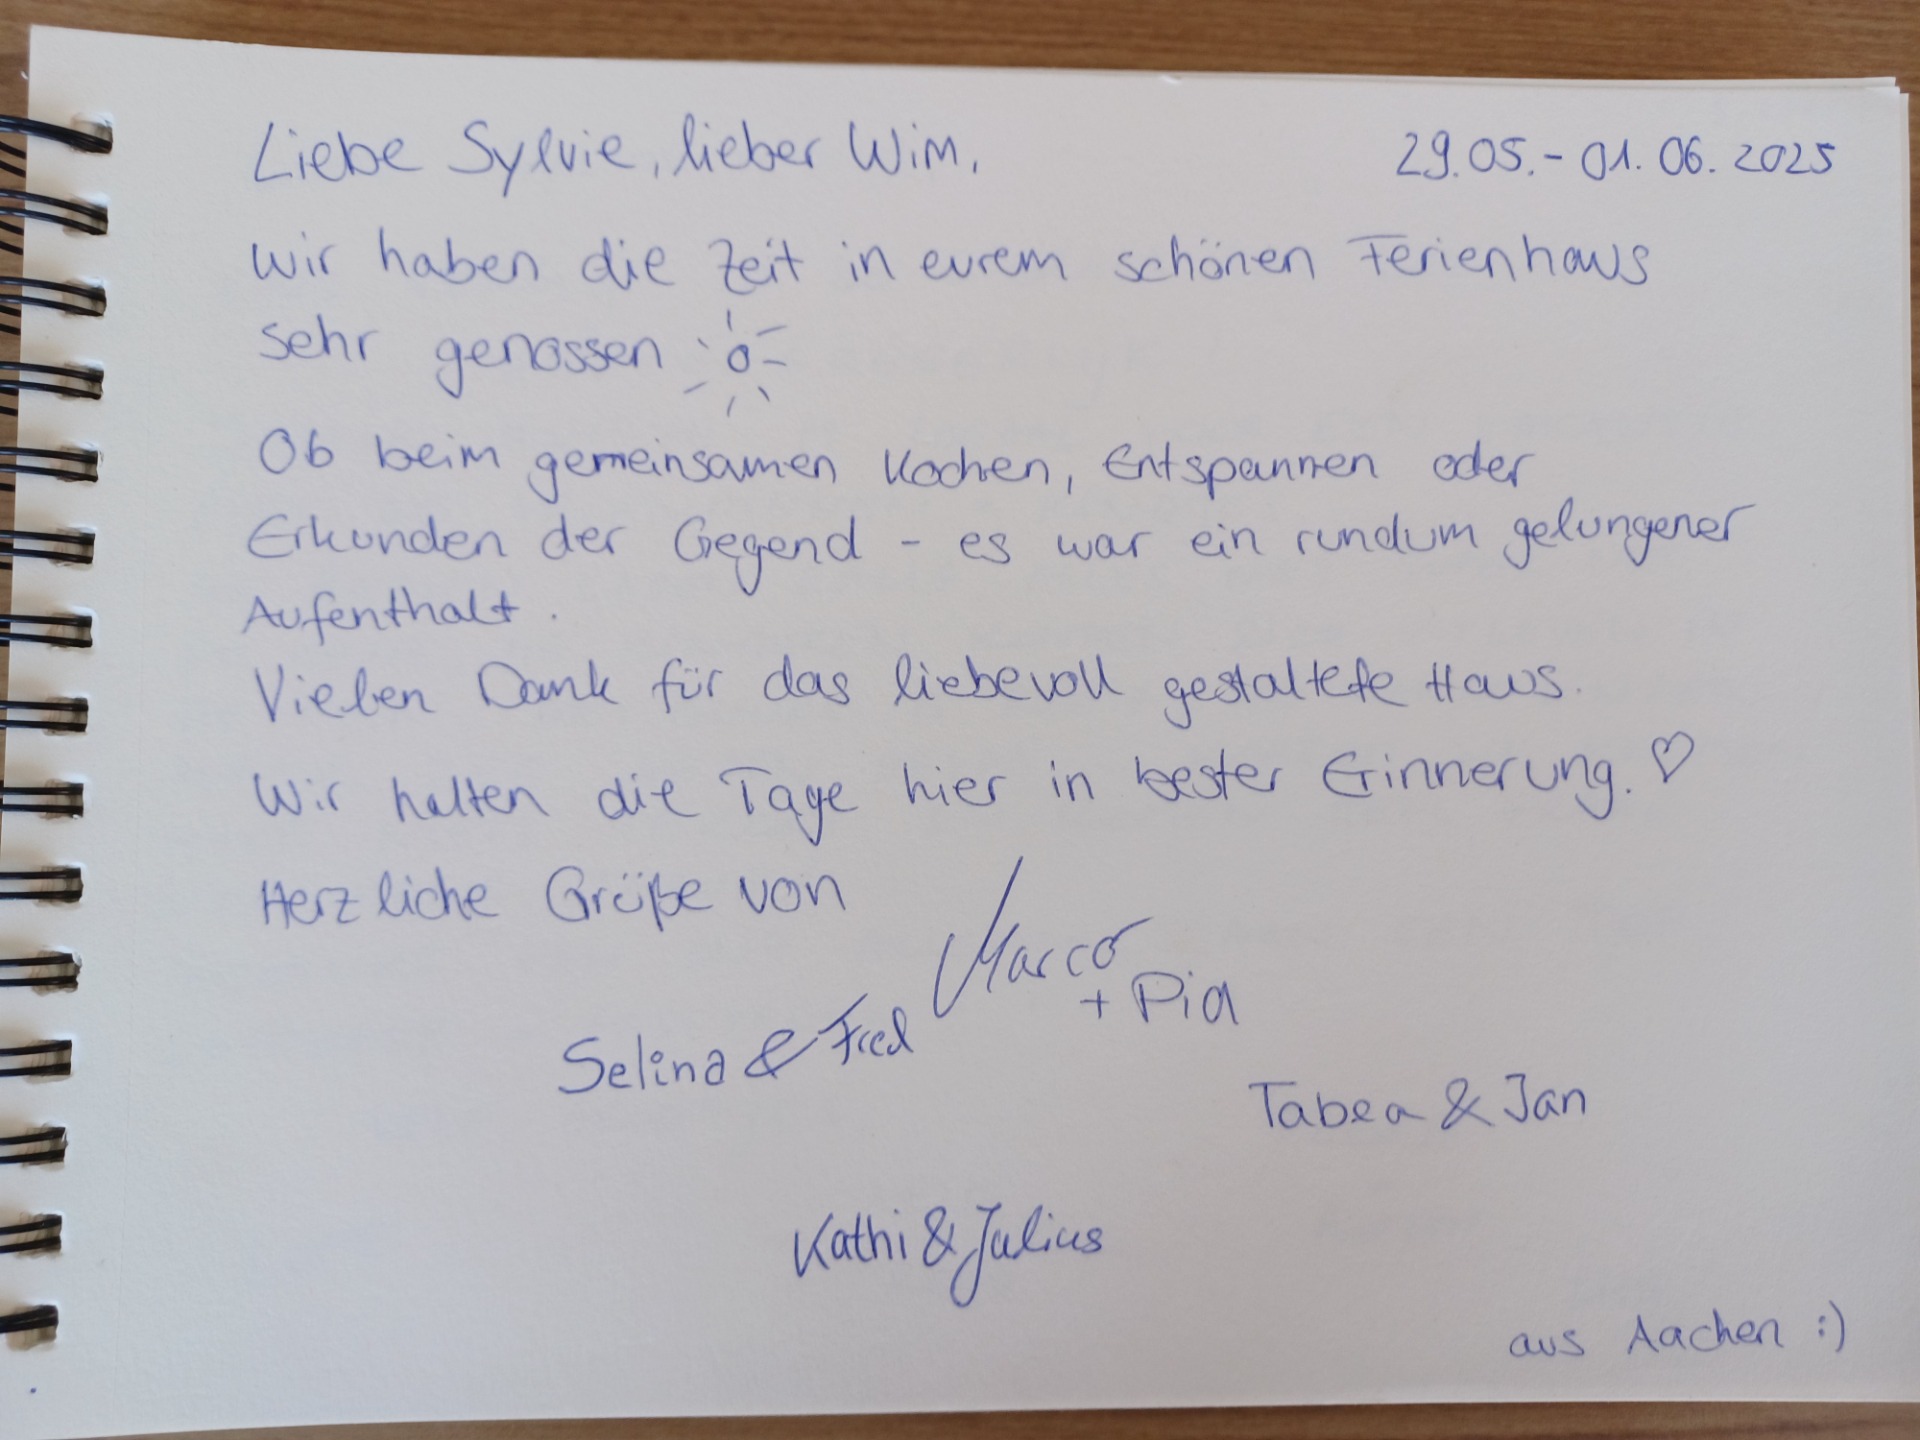 Liebe Sylvie, lieber Wim, 29.05.- 01.06.2025
wir haben die Zeit in eurem schönen Ferienhaus
sehr genossen
Ob beim gemeinsamen Kochen, Entspannen oder
Erkunden der Gegend - es war ein rundum gelungener
Aufenthalt.
Vielen Dank für das liebevoll gestaltete Haus.
Wir halten die Tage hier in bester Erinnerung. ♡
Herzliche Grüße von
Marco
+ Pia
Selina & Fred
Tabea & Jan
Kathi & Julius
aus Aachen :)